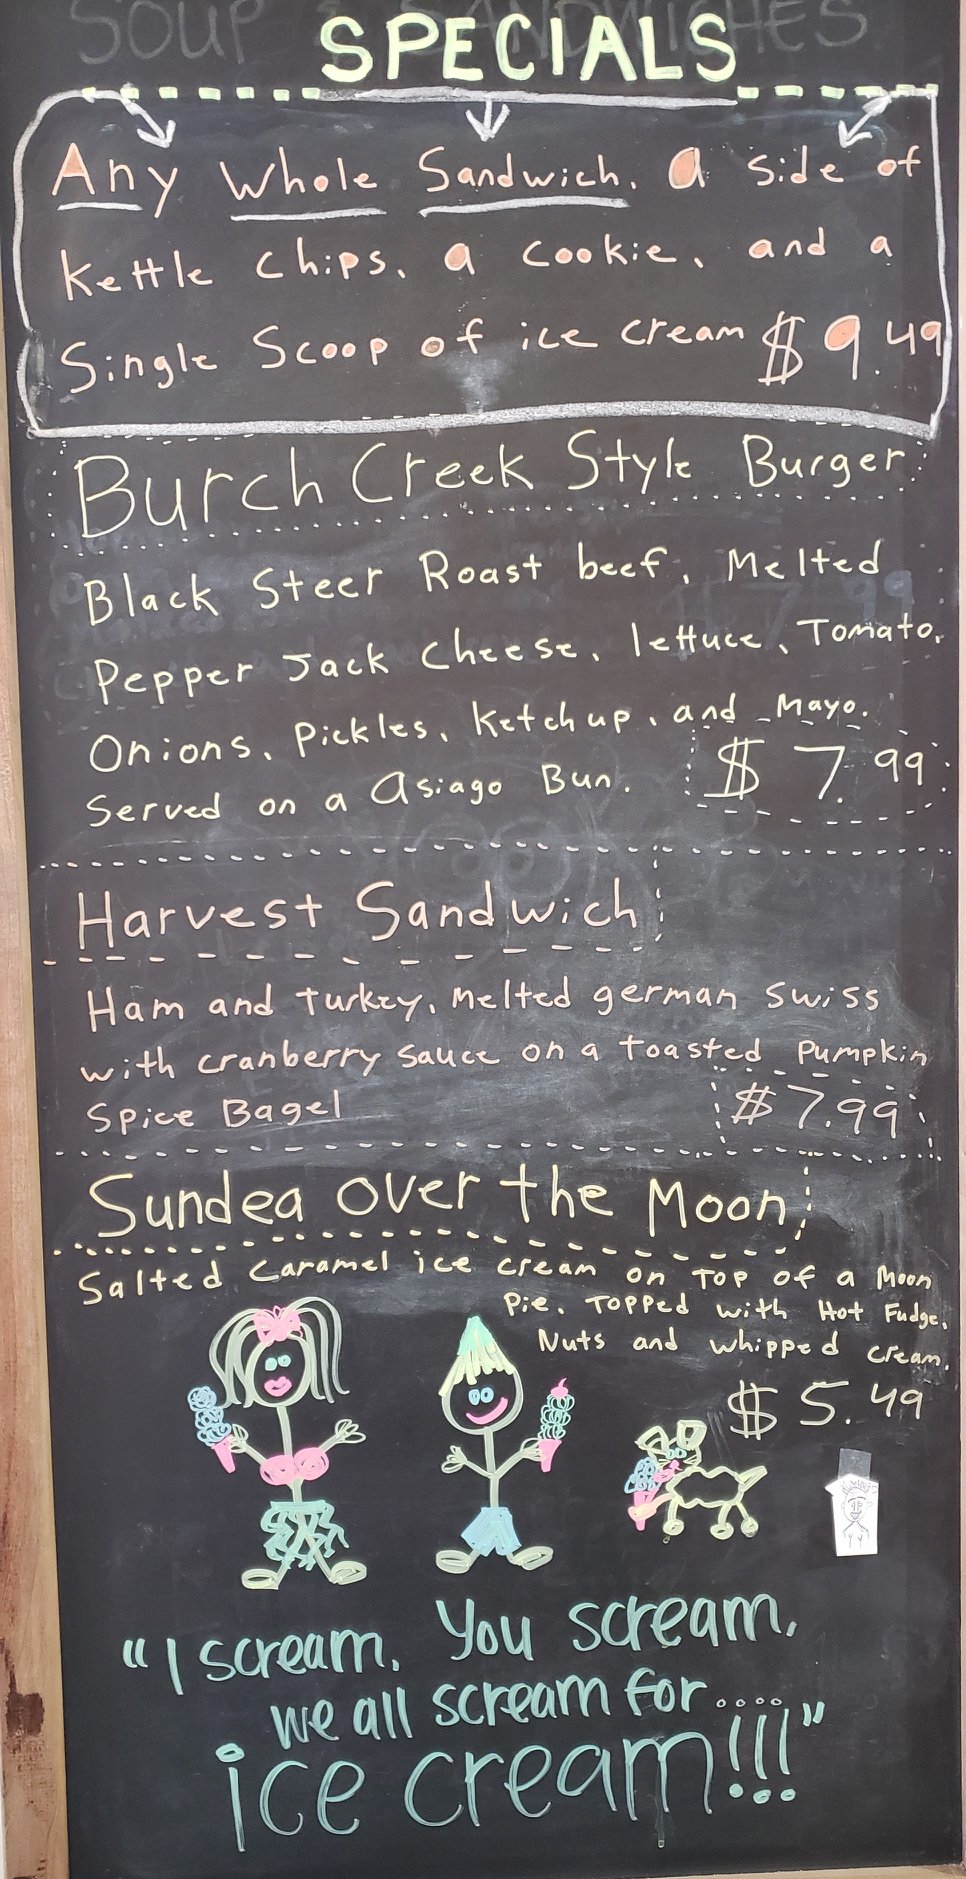 SOUP & SANDWICHES
SPECIALS
Any Whole Sandwich, a side of
Kettle Chips, a cookie, and a
Single Scoop of ice cream $9.49
Burch Creek Style Burger
Black Steer Roast beef, Melted
Pepper Jack Cheese, lettuce, Tomato,
Onions, Pickles, Ketchup, and Mayo.
Served on a Asiago Bun. $7.99
Harvest Sandwich
Ham and turkey, Melted german swiss
with cranberry sauce on a toasted Pumpkin
Spice Bagel $7.99
Sundea over the Moon
Salted Caramel ice cream on Top of a Moon
Pie, Topped with Hot Fudge,
Nuts and whipped cream.
$5.49
"I scream, You scream,
we all scream for....
ice cream!!!"